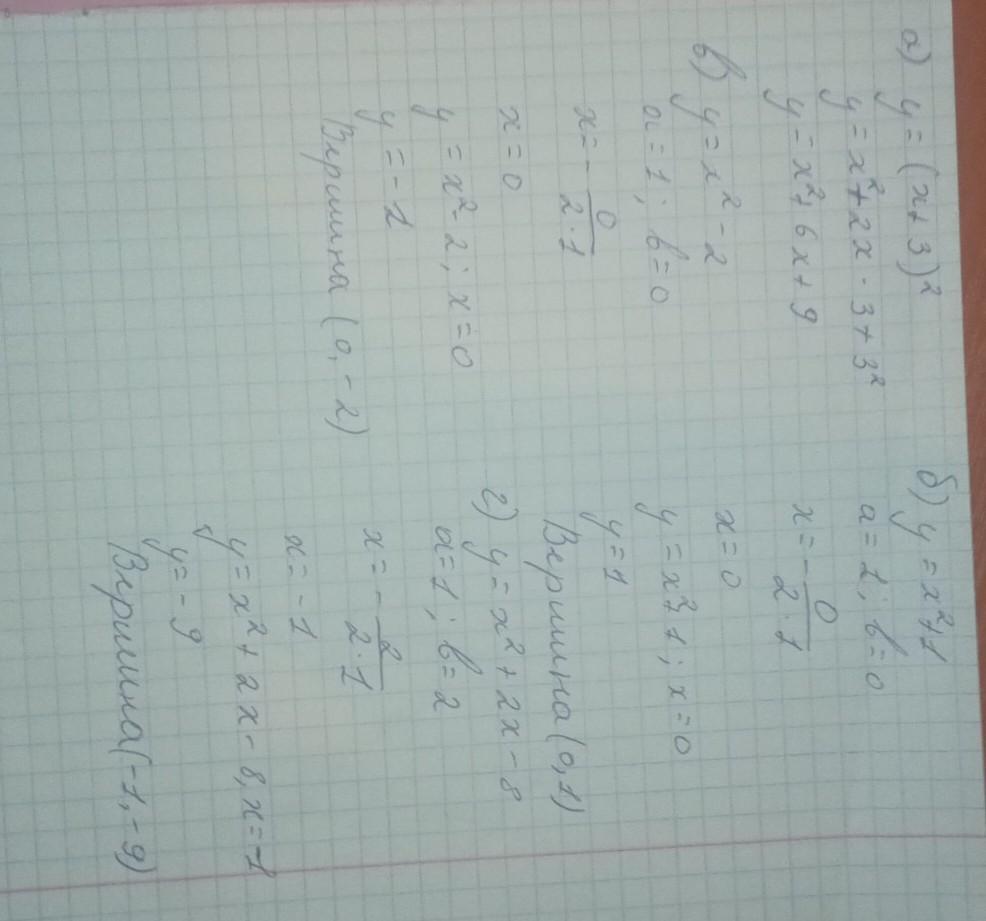 а) y = (x+3)²
y = x²+2x·3+3²
y = x²+6x+9
в) y = x²-2
a=1; b=0
x = - 0/2·1
x=0
y = x²-2; x=0
y = -1
Вершина (0, -2)
б) y = x²+1
a=1; b=0
x = - 0/2·1
x=0
y = x²+1; x=0
y=1
Вершина (0,1)
г) y = x²+2x-8
a=1; b=2
x = - 2/2·1
x=-1
y = x²+2x-8, x=-1
y=-9
Вершина(-1,-9)